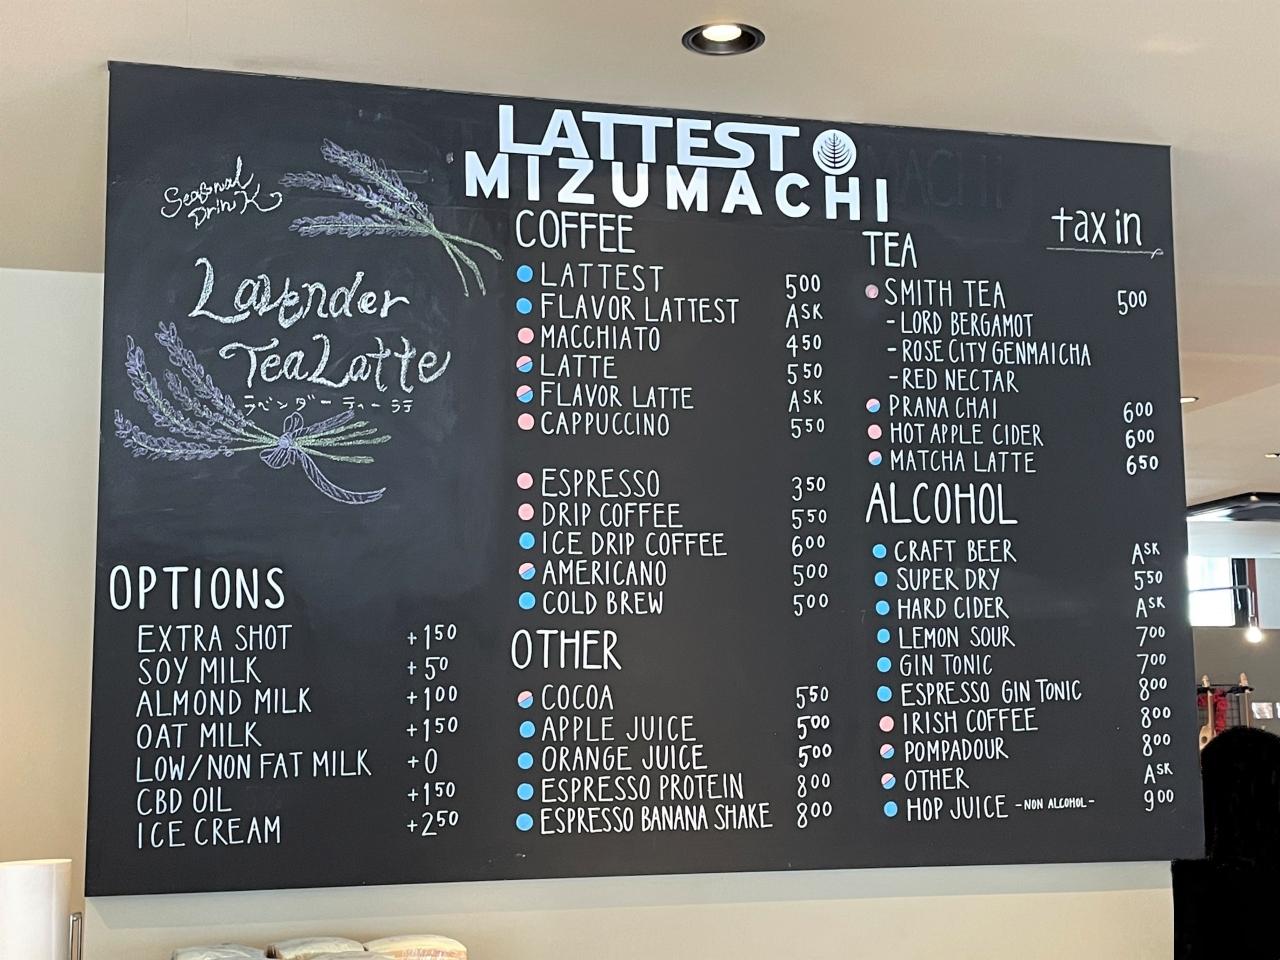 LATTEST
MIZUMACHI
Seasonal
Drink
Lavender
Tea Latte
ラベンダーティーラテ
OPTIONS
EXTRA SHOT +150
SOY MILK +50
ALMOND MILK +100
OAT MILK +150
LOW/NON FAT MILK +0
CBD OIL +150
ICE CREAM +250
COFFEE
LATTEST 500
FLAVOR LATTEST ASK
MACCHIATO 450
LATTE 550
FLAVOR LATTE ASK
CAPPUCCINO 550
ESPRESSO 350
DRIP COFFEE 550
ICE DRIP COFFEE 600
AMERICANO 500
COLD BREW 500
OTHER
COCOA 550
APPLE JUICE 500
ORANGE JUICE 500
ESPRESSO PROTEIN 800
ESPRESSO BANANA SHAKE 800
tax in
TEA
SMITH TEA 500
-LORD BERGAMOT
-ROSE CITY GENMAICHA
-RED NECTAR
PRANA CHAI 600
HOT APPLE CIDER 600
MATCHA LATTE 650
ALCOHOL
CRAFT BEER ASK
SUPER DRY 550
HARD CIDER ASK
LEMON SOUR 700
GIN TONIC 700
ESPRESSO GIN TONIC 800
IRISH COFFEE 800
POMPADOUR 800
OTHER ASK
HOP JUICE -NON ALCOHOL- 900